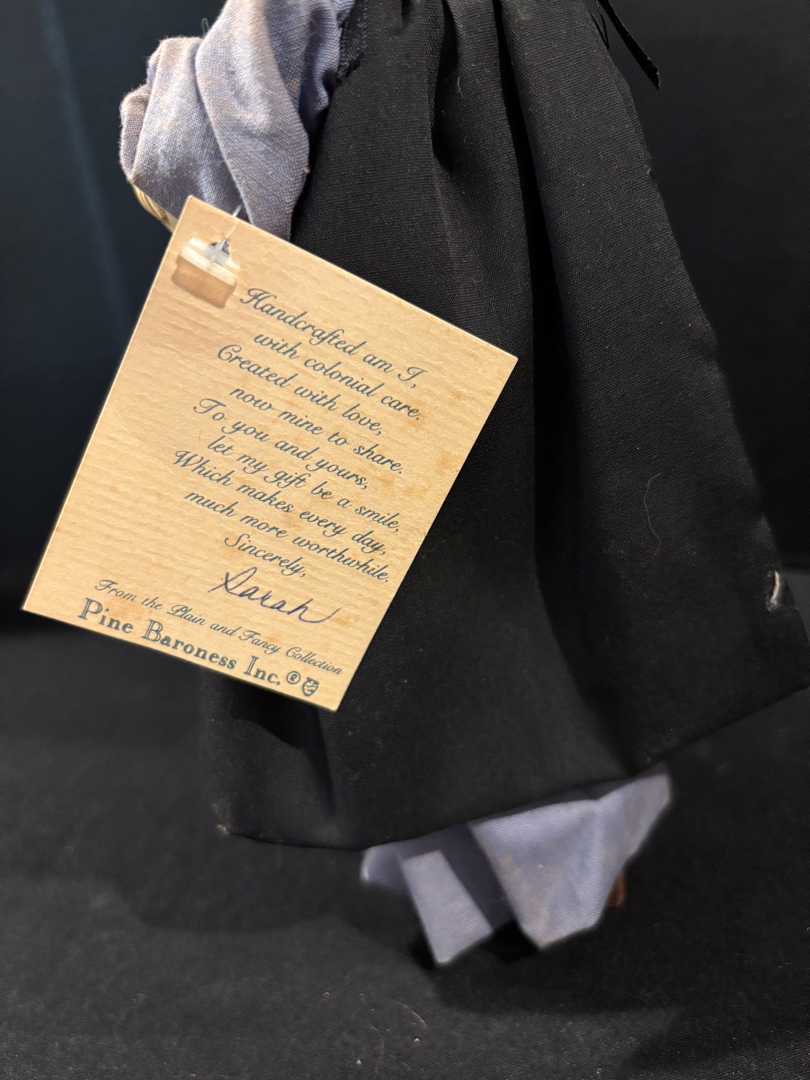 Handcrafted am I,
with colonial care.
Created with love,
now mine to share.
To you and yours,
let my gift be a smile,
Which makes every day,
much more worthwhile.
Sincerely,
Sarah
From the Plain and Fancy Collection
Pine Baroness Inc.®